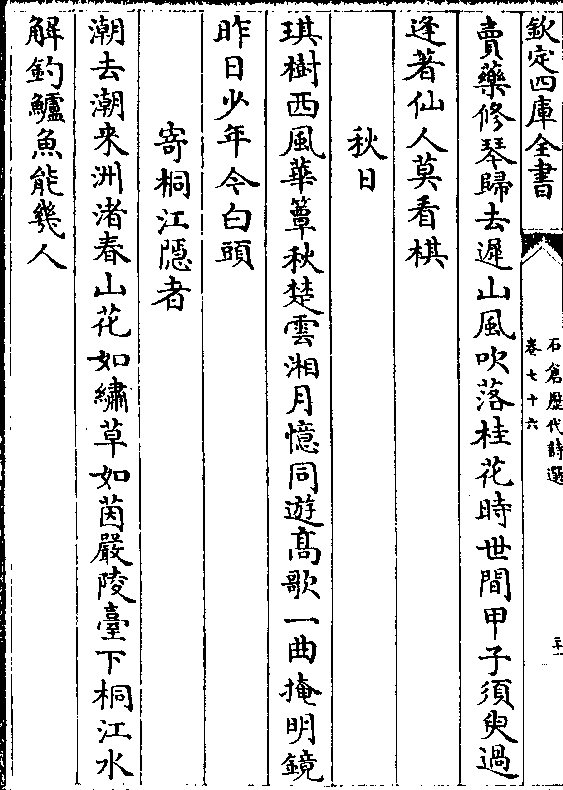 欽定四庫全書
石倉歷代詩選
卷七十六
賣藥修琴歸去遲山風吹落桂花時世間甲子須臾過
逢著仙人莫看棋
秋日
琪樹西風華簟秋楚雲湘月憶同遊髙歌一曲掩明鏡
昨日少年今白頭
寄桐江隱者
潮去潮来洲渚春山花如繡草如茵嚴陵臺下桐江水
解釣鱸魚能幾人